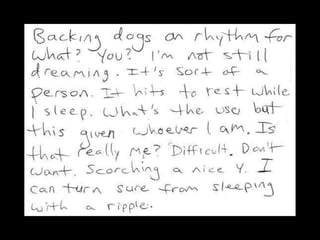 Backing dogs on rhythm for
what? You? I'm not still
dreaming. It's sort of a
person. It hits to rest while
I sleep. What's the use but
this given whoever I am. Is
that really me? Difficult. Don't
want. Scorching a nice y. I
can turn sure from sleeping
with a ripple.